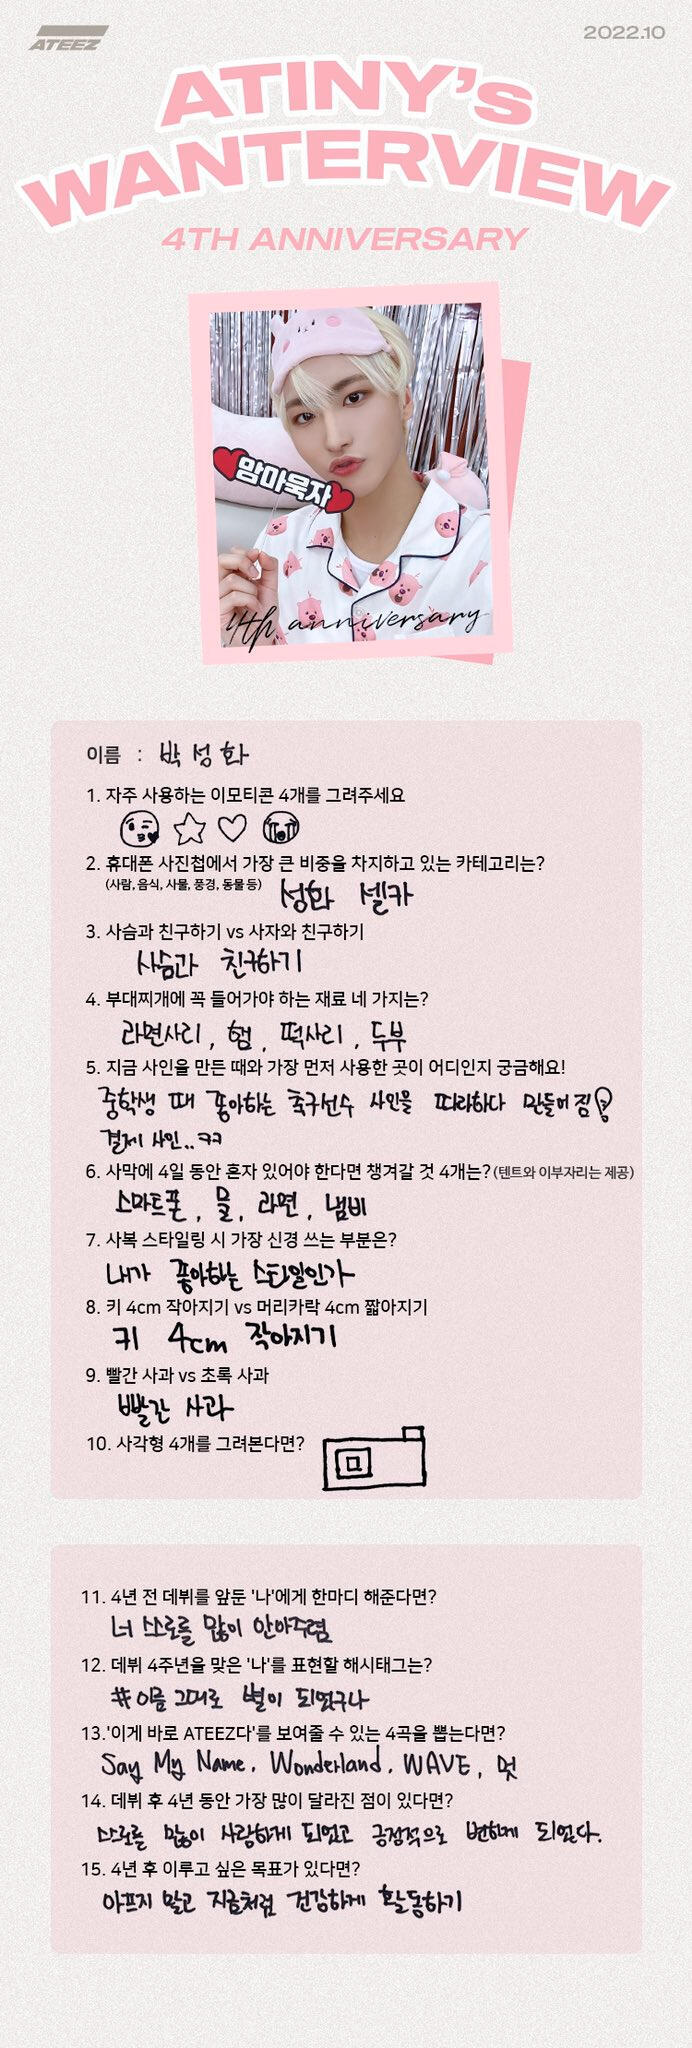 ATEEZ
2022.10
ATINY's
WANTERVIEW
4TH ANNIVERSARY
맘마묵자
4th anniversary
이름 : 박성화
1. 자주 사용하는 이모티콘 4개를 그려주세요
2. 휴대폰 사진첩에서 가장 큰 비중을 차지하고 있는 카테고리는?
(사람, 음식, 사물, 풍경, 동물 등) 성화 셀카
3. 사슴과 친구하기 vs 사자와 친구하기
사슴과 친구하기
4. 부대찌개에 꼭 들어가야 하는 재료 네 가지는?
라면사리, 햄, 떡사리, 두부
5. 지금 사인을 만든 때와 가장 먼저 사용한 곳이 어디인지 궁금해요!
중학생 때 좋아하는 축구선수 사인을 따라하다 만들어짐
결제 사인..ㅋㅋ
6. 사막에 4일 동안 혼자 있어야 한다면 챙겨갈 것 4개는? (텐트와 이부자리는 제공)
스마트폰, 물, 라면, 냄비
7. 사복 스타일링 시 가장 신경 쓰는 부분은?
내가 좋아하는 스타일인가
8. 키 4cm 작아지기 vs 머리카락 4cm 짧아지기
키 4cm 작아지기
9. 빨간 사과 vs 초록 사과
빨간 사과
10. 사각형 4개를 그려본다면?
11. 4년 전 데뷔를 앞둔 '나'에게 한마디 해준다면?
너 스스로를 많이 안아주렴
12. 데뷔 4주년을 맞은 '나'를 표현할 해시태그는?
#이름 그대로 별이 되었구나
13.'이게 바로 ATEEZ다'를 보여줄 수 있는 4곡을 뽑는다면?
Say My Name, Wonderland, WAVE, 멋
14. 데뷔 후 4년 동안 가장 많이 달라진 점이 있다면?
스스로를 많이 사랑하게 되었고 긍정적으로 변하게 되었다.
15. 4년 후 이루고 싶은 목표가 있다면?
아프지 말고 지금처럼 건강하게 활동하기